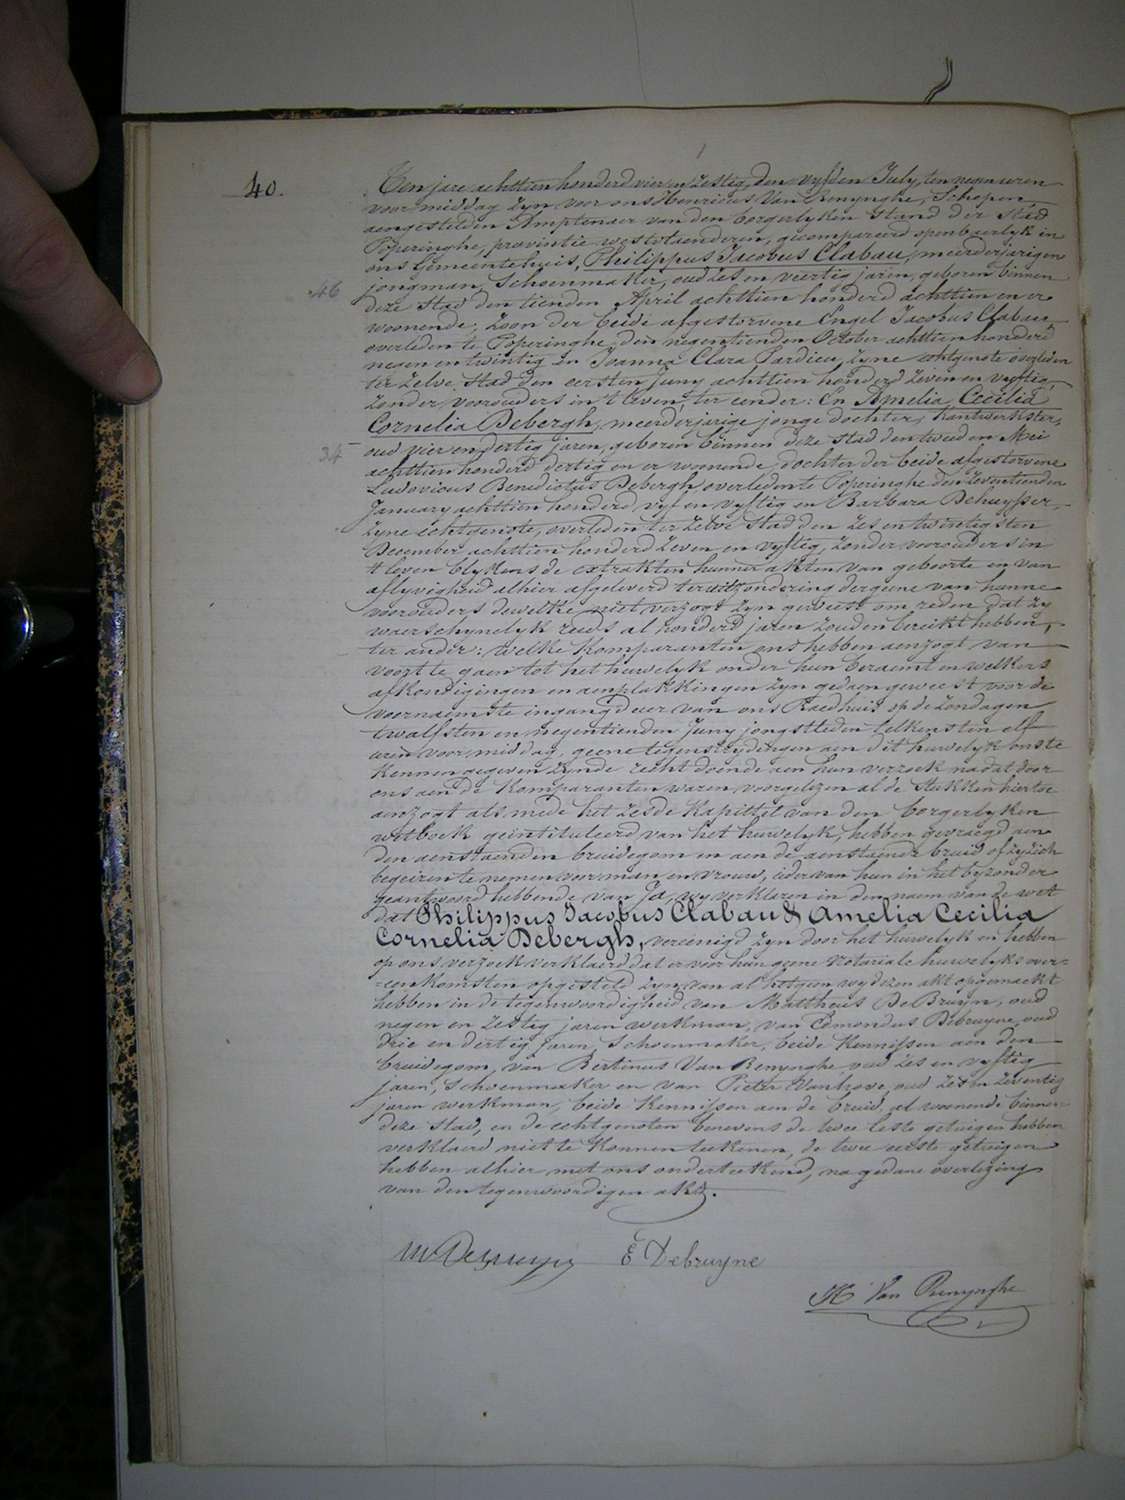 40.
Ten jare achttien honderd vier en zestig, den vyfden July, ten negen uren
voormiddag zyn voor ons Henricus Van Renynghe, Schepen
aengestelden Amptenaer van den borgerlyken Stand der Stad
Poperinghe, provintie westvlaenderen, gecompareerd openbaerlyk in
ons Gemeentehuis, Philippus Jacobus Clabau, meerderjarigen
46
jongman, Schoenmaker, oud zes en veertig jaren, geboren binnen
deze Stad den tienden April achttien honderd achttien en er
woonende, zoon der beide afgestorvene Engel Jacobus Clabau
overleden te Poperinghe, den negentienden October achttien honderd
negen en twintig en Joanna Clara Tardieu, zyne echtgenote overleden
ter zelve Stad den eersten juny achttien honderd zeven en vyftig,
zonder voorouders in 't leven, ter eender: En Amelia Cecilia
Cornelia Debergh, meerderjarige jonge dochter, hantwerkster,
34
oud vier en dertig jaren, geboren binnen deze Stad den tweeden Mei
achttien honderd dertig en er woonende, dochter der beide afgestorvene
Ludovicus Benedictus Debergh overleden te Poperinghe den zeventienden
January achttien honderd vyf en vyftig en Barbara Dehuysser,
zyne echtgenote, overleden ter zelve Stad den zes en twintigsten
December achttien honderd zeven en vyftig, zonder voorouders in
't leven blykens de extrakten hunner akten van geboorte en van
aflyvigheid alhier afgeleverd ter uitzondering dergene van hunne
voorouders dewelke niet verzogt zyn geweest om reden dat zy
waerschynelyk reeds al honderd jaren zouden bereikt hebben,
ter ander: welke komparanten ons hebben aenzogt van
voort te gaen tot het huwelyk onder hun beraemt en welkers
afkondigingen en aenplakkingen zyn gedaen geweest voor de
voornaemste ingangdeur van ons Raedhuis op de zondagen
twalfsten en negentienden Juny jongstleden telkens ten elf
uren voormiddag, geene tegenstrydingen aen dit huwelyk ons te
kennen gegeven zynde recht doende aen hun verzoek na dat door
ons aen de komparanten waren voorgelezen al de stukken hiertoe
aenzogt als mede het zesde kapittel van den borgerlyken
wetboek geintituleerd van het huwelyk, hebben gevraegd aen
den aenstaenden bruidegom en aen de aenstaende bruid of zy zich
begeiren te nemen voor man en vrouw, ieder van hun in het byzonder
geantwoord hebbende van Ja, wy verklaren in den naem van de wet
dat Philippus Jacobus Clabau & Amelia Cecilia
Cornelia Debergh, vereenigd zyn door het huwelyk en hebben
op ons verzoek verklaerd dat er voor hun geene notariale huwelyks over-
-eenkomsten opgesteld zyn, van al hetgeen wy dezen akt opgemaekt
hebben in de tegenwoordigheid van Mattheus De Bruyn, oud
negen en zestig jaren werkman, van Edmondus Debruyne, oud
drie en dertig jaren, Schoenmaker, beide kennissen aen den
bruidegom, van Bertinus Van Renynghe oud zes en vyftig
jaren, Schoenmaker en van Pieter Vanhove, oud zes en zeventig
jaren werkman, beide kennissen aen de bruid, al woonende binnen
deze Stad, en de echtgenoten benevens de twee leste getuigen hebben
verklaerd niet te konnen teekenen, de twee eerste getuigen
hebben alhier met ons onderteekend, na gedane overlezing
van den tegenwoordigen akt.
M Debruyn E Debruyne
H. Van Renynghe